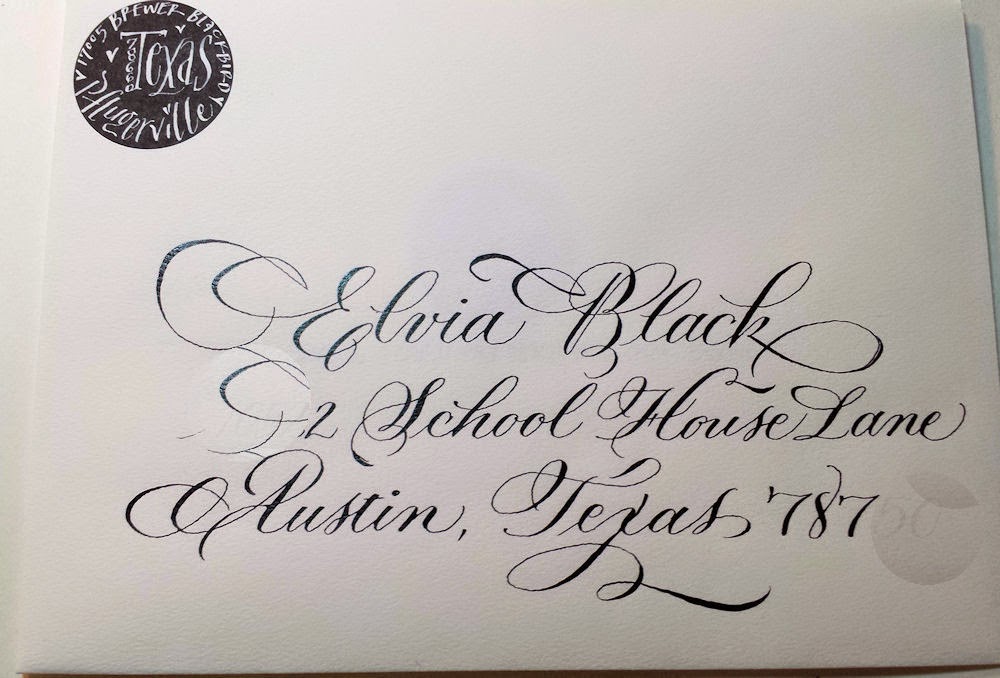 17005 BREWER BLACKBIRD
Texas
78660
Pflugerville
Elvia Black
2 School House Lane
Austin, Texas 787